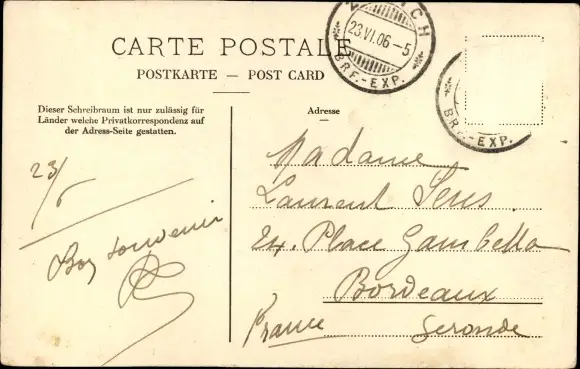 CARTE POSTALE
POSTKARTE — POST CARD
Dieser Schreibraum ist nur zulässig für
Länder welche Privatkorrespondenz auf
der Adress-Seite gestatten.
Adresse
23.VI.06-5
BRF.-EXP.
BRF.-EXP.
23/6
Bon souvenir
Madame
Laurent Sens
24, Place Gambetta
Bordeaux
France Gironde